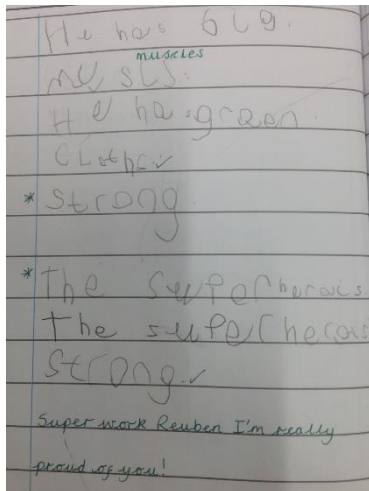 He has big.
muscles
mu sls.
He has green.
Cloths ✓
* Strong
* The superherois
The superherois
Strong. ✓
Super work Reuben I'm really
proud of you!